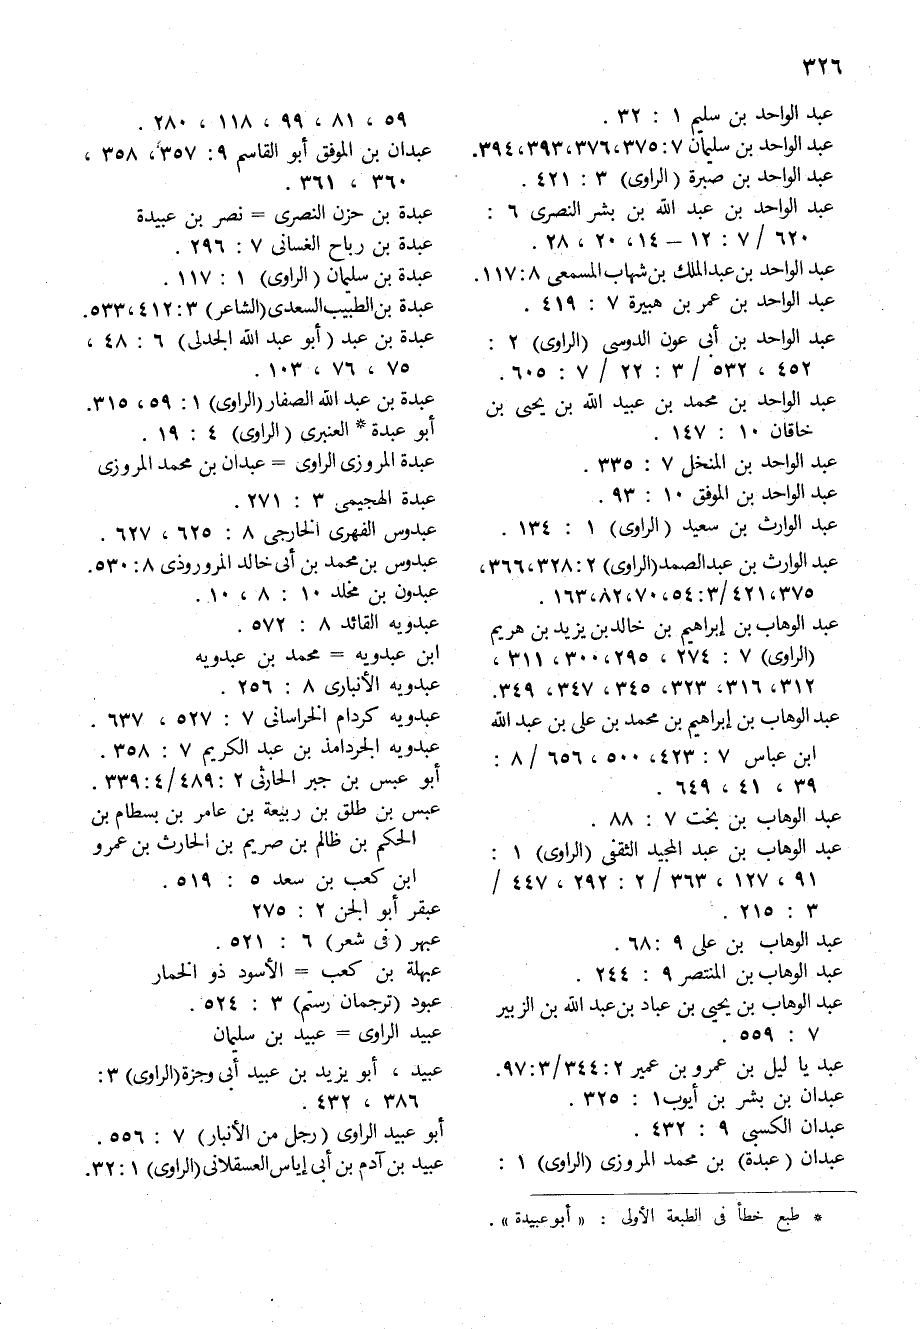 ٣٢٦
عبد الواحد بن سليم ١ : ٣٢ .
عبد الواحد بن سليمان ٧ : ٣٧٥ ، ٣٧٦ ، ٣٩٣ ، ٣٩٤ .
عبد الواحد بن صبرة ( الراوى ) ٣ : ٤٢١ .
عبد الواحد بن عبد الله بن بشر النصرى ٦ :
٦٢٠ / ٧ : ١٢ – ١٤ ، ٢٠ ، ٢٨ .
عبد الواحد بن عبد الملك بن شهاب المسمعى ٨ : ١١٧ .
عبد الواحد بن عمر بن هبيرة ٧ : ٤١٩ .
عبد الواحد بن أبى عون الدوسى ( الراوى ) ٢ :
٤٥٢ ، ٥٣٢ / ٣ : ٢٢ / ٧ : ٦٠٥ .
عبد الواحد بن محمد بن عبيد الله بن يحيى بن
خاقان ١٠ : ١٤٧ .
عبد الواحد بن المنخل ٧ : ٣٣٥ .
عبد الواحد بن الموفق ١٠ : ٩٣ .
عبد الوارث بن سعيد ( الراوى ) ١ : ١٣٤ .
عبد الوارث بن عبد الصمد ( الراوى ) ٢ : ٣٢٨ ، ٣٦٦ ،
٣٧٥ ، ٤٢١ / ٣ : ٥٤ ، ٧٠ ، ٨٢ ، ١٦٣ .
عبد الوهاب بن إبراهيم بن خالد بن يزيد بن هريم
( الراوى ) ٧ : ٢٧٤ ، ٢٩٥ ، ٣٠٠ ، ٣١١ ،
٣١٢ ، ٣١٦ ، ٣٢٣ ، ٣٤٥ ، ٣٤٧ ، ٣٤٩ .
عبد الوهاب بن إبراهيم بن محمد بن على بن عبد الله
ابن عباس ٧ : ٤٢٣ ، ٥٠٠ ، ٦٥٦ / ٨ :
٣٩ ، ٤١ ، ٦٤٩ .
عبد الوهاب بن بخت ٧ : ٨٨ .
عبد الوهاب بن عبد المجيد الثقفى ( الراوى ) ١ :
٩١ ، ١٢٧ ، ٣٦٣ / ٢ : ٢٩٢ ، ٤٤٧ /
٣ : ٢١٥ .
عبد الوهاب بن على ٩ : ٦٨ .
عبد الوهاب بن المنتصر ٩ : ٢٤٤ .
عبد الوهاب بن يحيى بن عباد بن عبد الله بن الزبير
٧ : ٥٥٩ .
عبد يا ليل بن عمرو بن عمير ٢ : ٣٤٤ / ٣ : ٩٧ .
عبدان بن بشر بن أيوب ١ : ٣٢٥ .
عبدان الكسبى ٩ : ٤٣٢ .
عبدان ( عبدة ) بن محمد المروزى ( الراوى ) ١ :
٥٩ ، ٨١ ، ٩٩ ، ١١٨ ، ٢٨٠ .
عبدان بن الموفق أبو القاسم ٩ : ٣٥٧ ، ٣٥٨ ،
٣٦٠ ، ٣٦١ .
عبدة بن حزن النصرى = نصر بن عبيدة
عبدة بن رباح الغسانى ٧ : ٢٩٦ .
عبدة بن سليمان ( الراوى ) ١ : ١١٧ .
عبدة بن الطبيب السعدى ( الشاعر ) ٣ : ٤١٢ ، ٥٣٣ .
عبدة بن عبد ( أبو عبد الله الجدلى ) ٦ : ٤٨ ،
٧٥ ، ٧٦ ، ١٠٣ .
عبدة بن عبد الله الصفار ( الراوى ) ١ : ٥٩ ، ٣١٥ .
أبو عبدة * العنبرى ( الراوى ) ٤ : ١٩ .
عبدة المروزى الراوى = عبدان بن محمد المروزى
عبدة الهجيمى ٣ : ٢٧١ .
عبدوس الفهرى الخارجى ٨ : ٦٢٥ ، ٦٢٧ .
عبدوس بن محمد بن أبى خالد المروروذى ٨ : ٥٣٠ .
عبدون بن مخلد ١٠ : ٨ ، ١٠ .
عبدويه القائد ٨ : ٥٧٢ .
ابن عبدويه = محمد بن عبدويه
عبدويه الأنبارى ٨ : ٢٥٦ .
عبدويه كردام الخراسانى ٧ : ٥٢٧ ، ٦٣٧ .
عبدويه الجردامذ بن عبد الكريم ٧ : ٣٥٨ .
أبو عبس بن جبر الحارثى ٢ : ٤٨٩ / ٤ : ٣٣٩ .
عبس بن طلق بن ربيعة بن عامر بن بسطام بن
الحكم بن ظالم بن صريم بن الحارث بن عمرو
ابن كعب بن سعد ٥ : ٥١٩ .
عبقر أبو الجن ٢ : ٢٧٥
عبهر ( فى شعر ) ٦ : ٥٢١ .
عبهلة بن كعب = الأسود ذو الخمار
عبود ( ترجمان رستم ) ٣ : ٥٢٤ .
عبيد الراوى = عبيد بن سليمان
عبيد ، أبو يزيد بن عبيد أبى وجزة ( الراوى ) ٣ :
٣٨٦ ، ٤٣٢ .
أبو عبيد الراوى ( رجل من الأنبار ) ٧ : ٥٥٦ .
عبيد بن آدم بن أبى إياس العسقلانى ( الراوى ) ١ : ٣٢ .
* طبع خطأ فى الطبعة الأولى : « أبو عبيدة » .